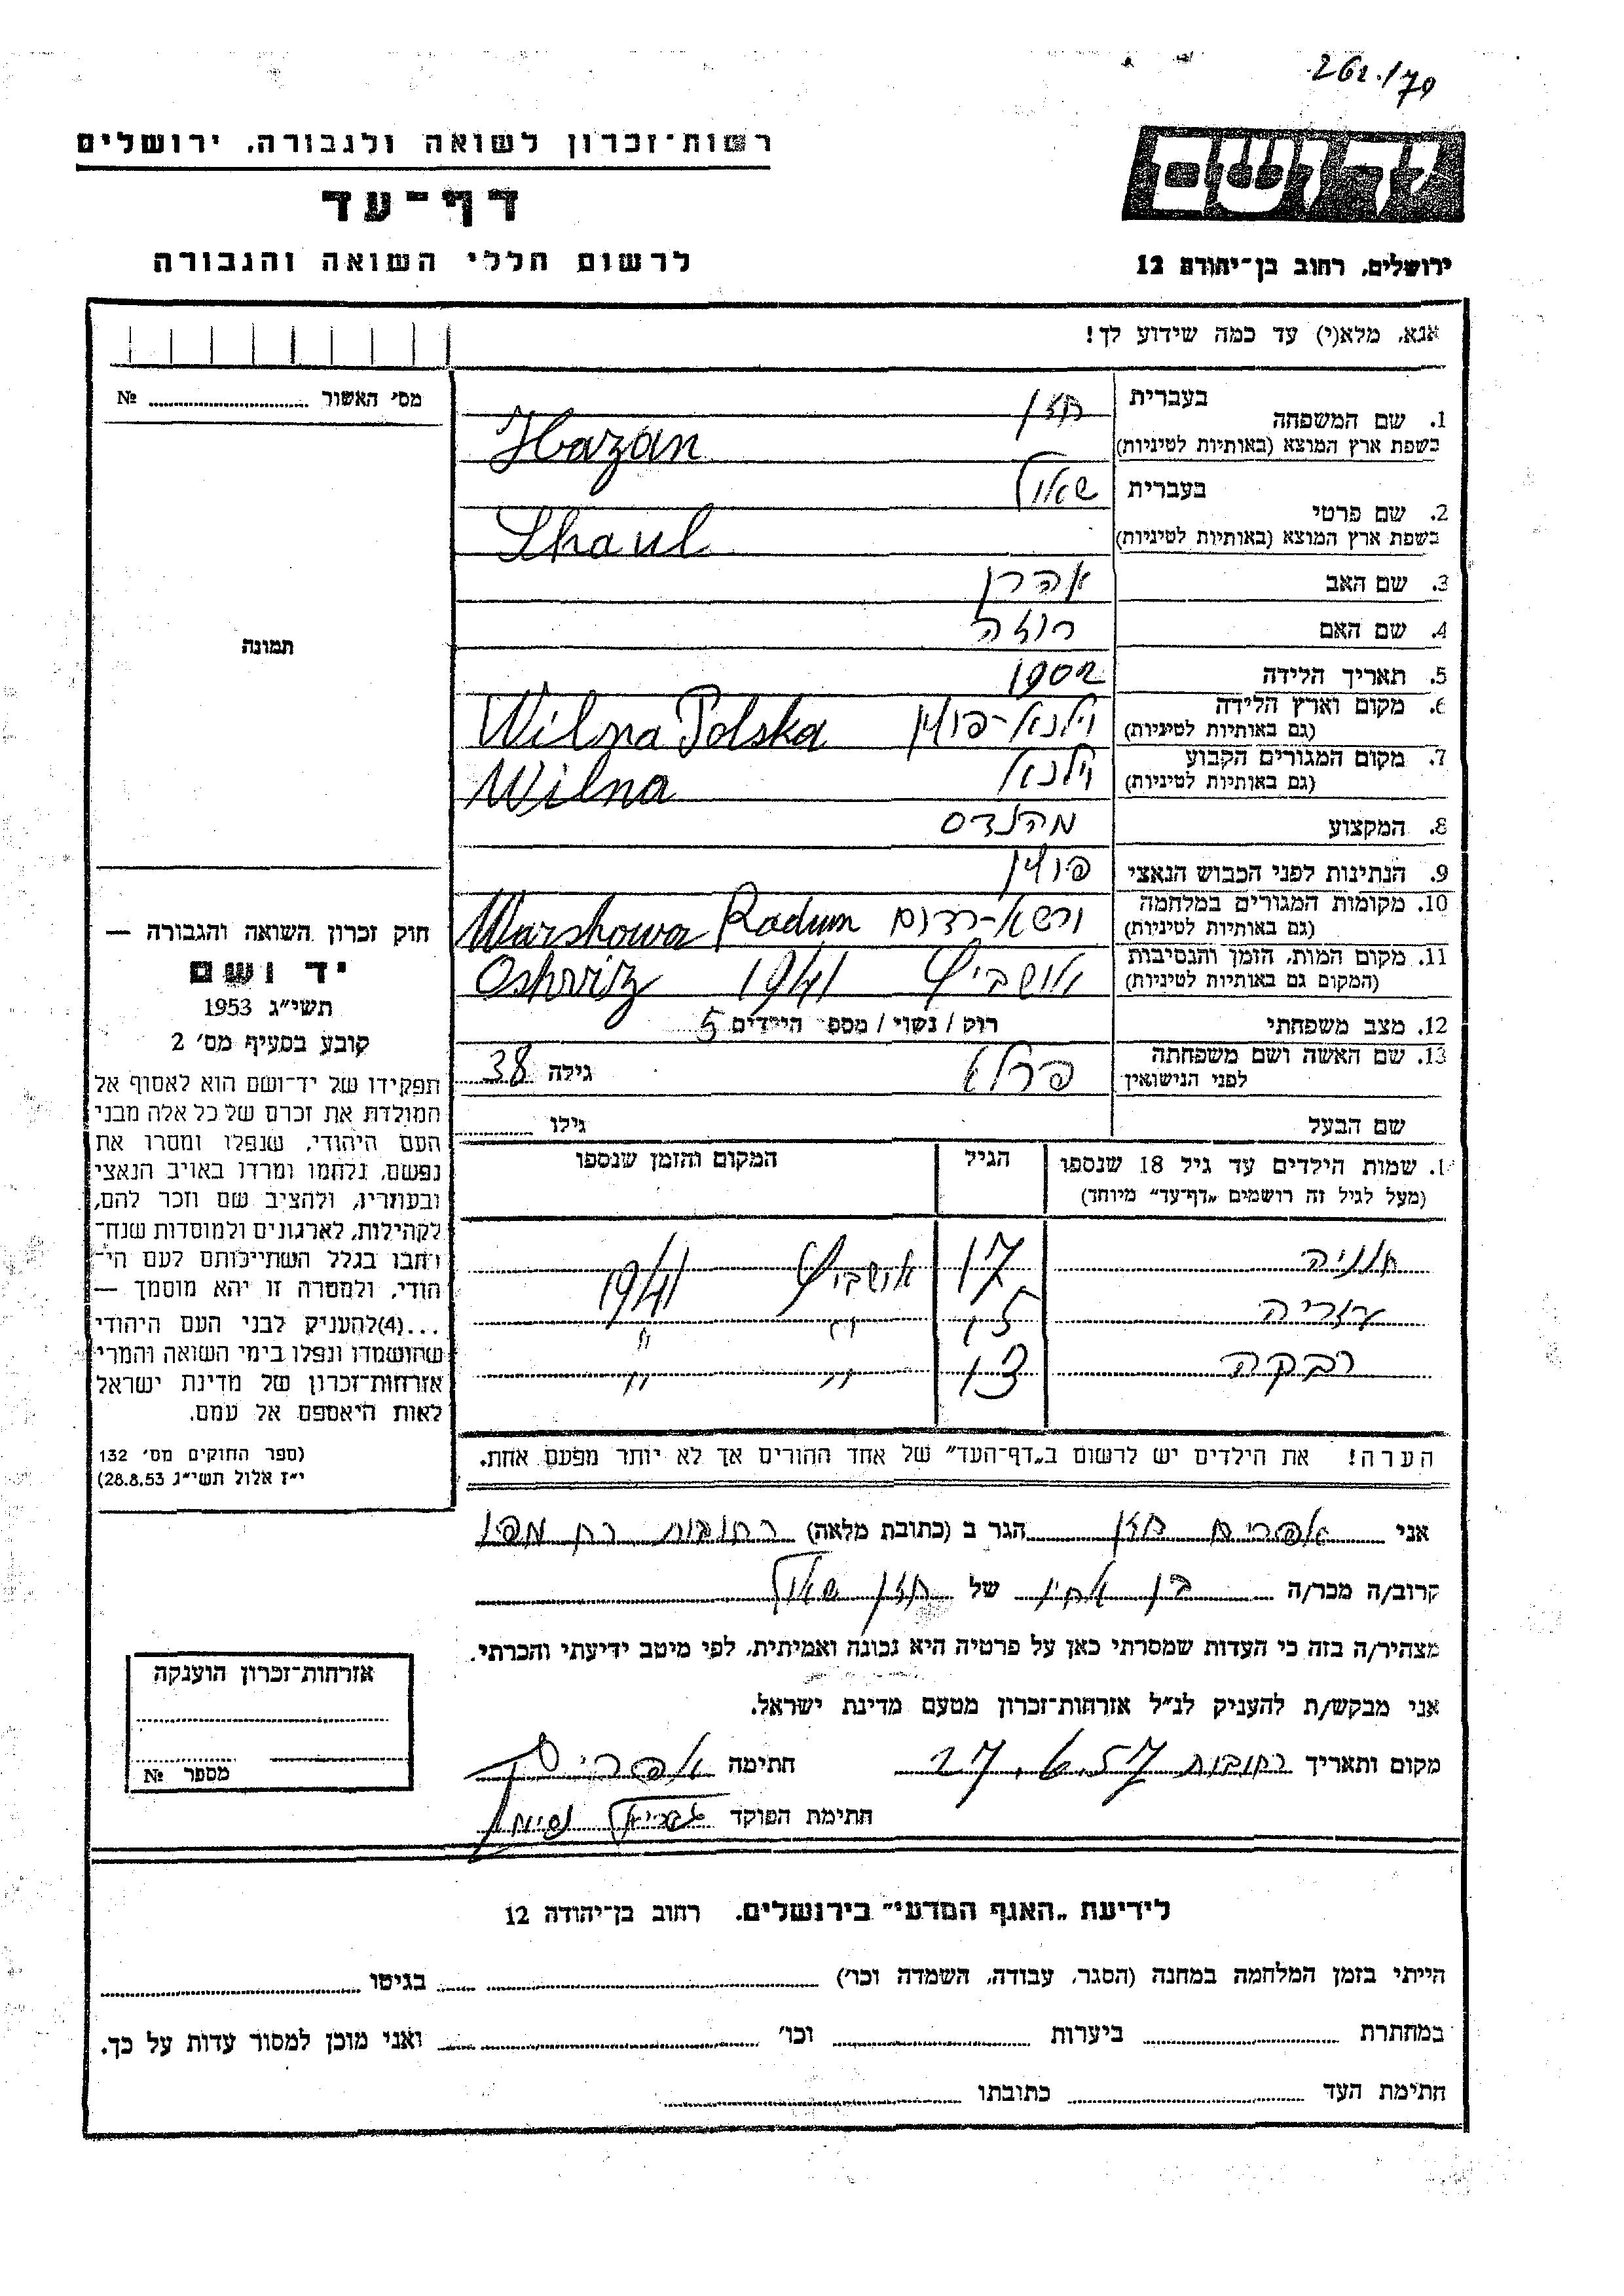 262/70
רשות־זכרון לשואה ולגבורה, ירושלים
יד ושם
דף־עד
לרשום חללי השואה והגבורה
ירושלים, רחוב בן־יהודה 12
אנא, מלא(י) עד כמה שידוע לך!
מס' האשור № 
1. שם המשפחה
בעברית חזן
בשפת ארץ המוצא (באותיות לטיניות) Hazan
2. שם פרטי
בעברית שאול
בשפת ארץ המוצא (באותיות לטיניות) Shaul
3. שם האב אהרן
תמונה
4. שם האם רוזה
5. תאריך הלידה 1902
6. מקום וארץ הלידה (גם באותיות לטיניות) וילנא-פולין Wilna Polska
7. מקום המגורים הקבוע (גם באותיות לטיניות) וילנא Wilna
8. המקצוע מהנדס
9. הנתינות לפני הכבוש הנאצי פולין
10. מקומות המגורים במלחמה (גם באותיות לטיניות) ורשא-רדום Warshowa Radum
11. מקום המות, הזמן והנסיבות (המקום גם באותיות לטיניות) אושביץ 1941 Oshviz
12. מצב משפחתי רוק / נשוי / מספ' הילדים 5
13. שם האשה ושם משפחתה לפני הנישואין פרלא גילה 38
שם הבעל גילו
חוק זכרון השואה והגבורה —
יד ושם
תשי"ג 1953
קובע בסעיף מס' 2
תפקידו של יד־ושם הוא לאסוף אל
המולדת את זכרם של כל אלה מבני
העם היהודי, שנפלו ומסרו את
נפשם, נלחמו ומרדו באויב הנאצי
ובעוזריו, ולהציב שם וזכר להם,
לקהילות, לארגונים ולמוסדות שנח־
רבו בגלל השתייכותם לעם הי־
הודי, ולמטרה זו יהא מוסמך —
...(4) להעניק לבני העם היהודי
שהושמדו ונפלו בימי השואה והמרי
אזרחות־זכרון של מדינת ישראל
לאות היאספם אל עמם.
(ספר החוקים מס' 132
י"ז אלול תשי"ג 28.8.53)
1. שמות הילדים עד גיל 18 שנספו הגיל המקום והזמן שנספו
(מעל לגיל זה רושמים "דף־עד" מיוחד)
חניה 17 אושביץ 1941
עזריה 15 " "
רבקה 13 " "
הערה! את הילדים יש לרשום ב"דף־העד" של אחד ההורים אך לא יותר מפעם אחת.
אני אפרים חזן הגר ב (כתובת מלאה) רחובות רח מפו
קרוב/ה מכר/ה בן אחיו של חזן שאול
מצהיר/ה בזה כי העדות שמסרתי כאן על פרטיה היא נכונה ואמיתית, לפי מיטב ידיעתי והכרתי.
אני מבקש/ת להעניק לנ"ל אזרחות־זכרון מטעם מדינת ישראל.
מקום ותאריך רחובות 27.6.57 חתימה אפרים
חתימת הפוקד גבריאל
אזרחות־זכרון הוענקה
מספר №
לידיעת "האגף המדעי" בירושלים, רחוב בן־יהודה 12
הייתי בזמן המלחמה במחנה (הסגר, עבודה, השמדה וכו') בגיטו
במחתרת ביערות וכו' ואני מוכן למסור עדות על כך.
חתימת העד כתובתו